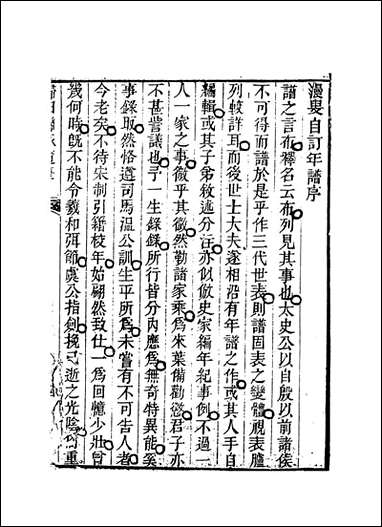 漫叟自訂年譜序
譜之言布釋名云布列見其事也太史公以自殷以前諸侯
不可得而譜於是乎作三代世表則譜固表之變體視表臚
列較詳耳而後世士大夫遂相沿有年譜之作或其人手自
編輯或其子弟敘述分注亦似倣史家編年紀事例不過一
人一家之事徵乎其徵然勒諸家乘為來葉備勸懲君子亦
不甚訾議也予一生錄錄所行皆分內應為無奇特異能奚
事錄取然恪遵司馬溫公訓生平所為未嘗有不可告人者
今老矣不待宋制引籍校年始翩然致仕一為回憶少壯曾
幾何時既不能令羲和弭節虞公指劍挽已逝之光陰為重